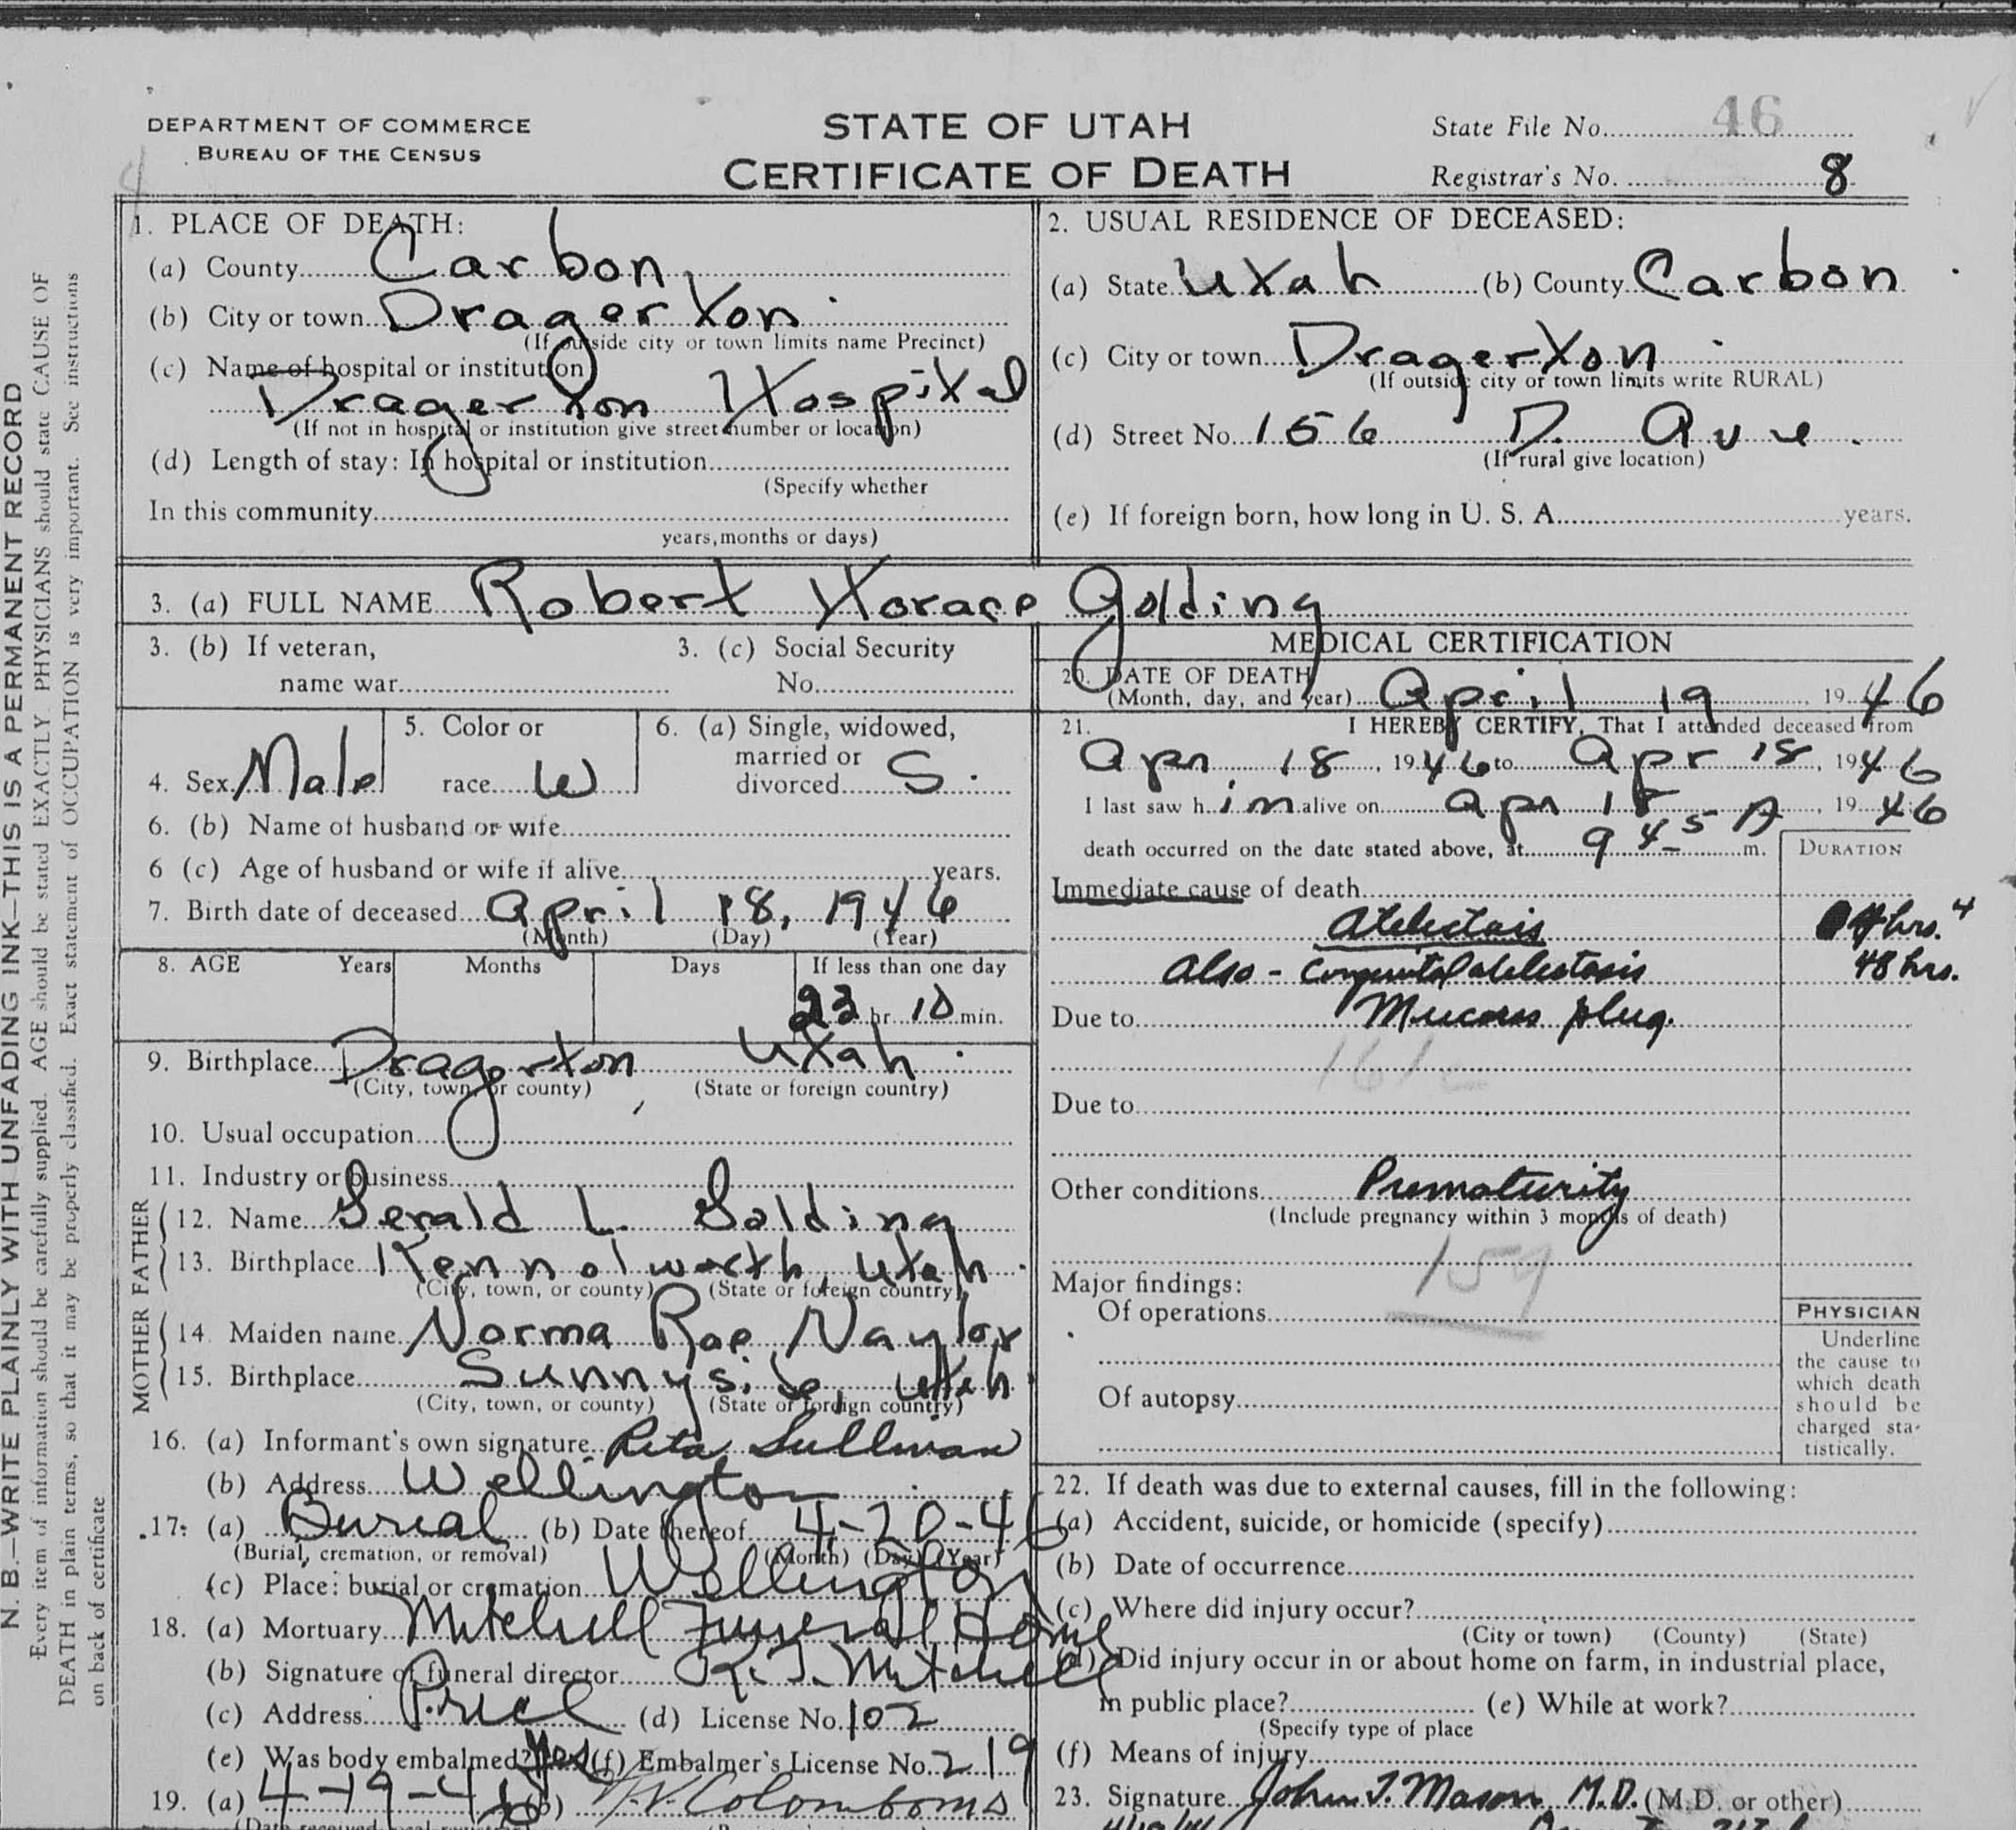 DEPARTMENT OF COMMERCE
BUREAU OF THE CENSUS
STATE OF UTAH
CERTIFICATE OF DEATH
State File No. 46
Registrar's No. 8
N. B.—WRITE PLAINLY WITH UNFADING INK—THIS IS A PERMANENT RECORD
Every item of information should be carefully supplied. AGE should be stated EXACTLY. PHYSICIANS should state CAUSE OF
DEATH in plain terms, so that it may be properly classified. Exact statement of OCCUPATION is very important. See instructions
on back of certificate
1. PLACE OF DEATH:
(a) County Carbon
(b) City or town Dragerton
(If outside city or town limits name Precinct)
(c) Name of hospital or institution
Dragerton Hospital
(If not in hospital or institution give street number or location)
(d) Length of stay: In hospital or institution
(Specify whether
In this community
years, months or days)
2. USUAL RESIDENCE OF DECEASED:
(a) State Utah (b) County Carbon
(c) City or town Dragerton
(If outside city or town limits write RURAL)
(d) Street No. 156 D. Ave.
(If rural give location)
(e) If foreign born, how long in U. S. A. years.
3. (a) FULL NAME Robert Horace Golding
3. (b) If veteran, name war
3. (c) Social Security No.
4. Sex Male
5. Color or race W
6. (a) Single, widowed, married or divorced S.
6. (b) Name of husband or wife
6 (c) Age of husband or wife if alive years.
7. Birth date of deceased April 18, 1946
(Month) (Day) (Year)
8. AGE Years Months Days If less than one day
23 hr. 10 min.
9. Birthplace Dragerton Utah
(City, town, or county) (State or foreign country)
10. Usual occupation
11. Industry or business
FATHER
12. Name Gerald L. Golding
13. Birthplace Kennolworth, Utah
(City, town, or county) (State or foreign country)
MOTHER
14. Maiden name Norma Rae Naylor
15. Birthplace Sunnyside, Utah
(City, town, or county) (State or foreign country)
16. (a) Informant's own signature Rita Sullivan
(b) Address Wellington
17. (a) Burial (b) Date thereof 4-20-46
(Burial, cremation, or removal) (Month) (Day) (Year)
(c) Place: burial or cremation Wellington
18. (a) Mortuary Mitchell Funeral Home
(b) Signature of funeral director R. J. Mitchell
(c) Address Price (d) License No. 102
(e) Was body embalmed? Yes (f) Embalmer's License No. 219
19. (a) 4-19-46 (b)
MEDICAL CERTIFICATION
20. DATE OF DEATH
(Month, day, and year) April 19, 1946
21. I HEREBY CERTIFY, That I attended deceased from
Apr. 18, 1946 to Apr 18, 1946
I last saw him alive on Apr 18, 1946
death occurred on the date stated above, at 9 45 A m.
DURATION
Immediate cause of death
Atelectais 4 hrs.
Also - Congenital atelectasis 48 hrs.
Due to Mucous plug.
161c
Due to
Other conditions Prematurity
(Include pregnancy within 3 months of death)
159
Major findings:
Of operations
Of autopsy
PHYSICIAN
Underline
the cause to
which death
should be
charged sta-
tistically.
22. If death was due to external causes, fill in the following:
(a) Accident, suicide, or homicide (specify)
(b) Date of occurrence
(c) Where did injury occur?
(City or town) (County) (State)
(d) Did injury occur in or about home on farm, in industrial place,
in public place? (e) While at work?
(Specify type of place
(f) Means of injury
23. Signature John J. Mason M.D. (M.D. or other)